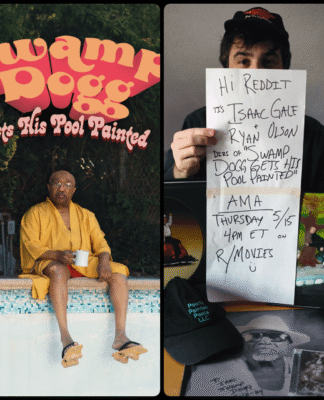 Swamp
Dogg
ets His Pool Painted
HI REDDIT
IT'S ISAAC GALE
+
RYAN OLSON
DIRS OF "SWAMP
DOGG GETS HIS
POOL PAINTED"
AMA
THURSDAY 5/15
4PM ET ON
R/MOVIES